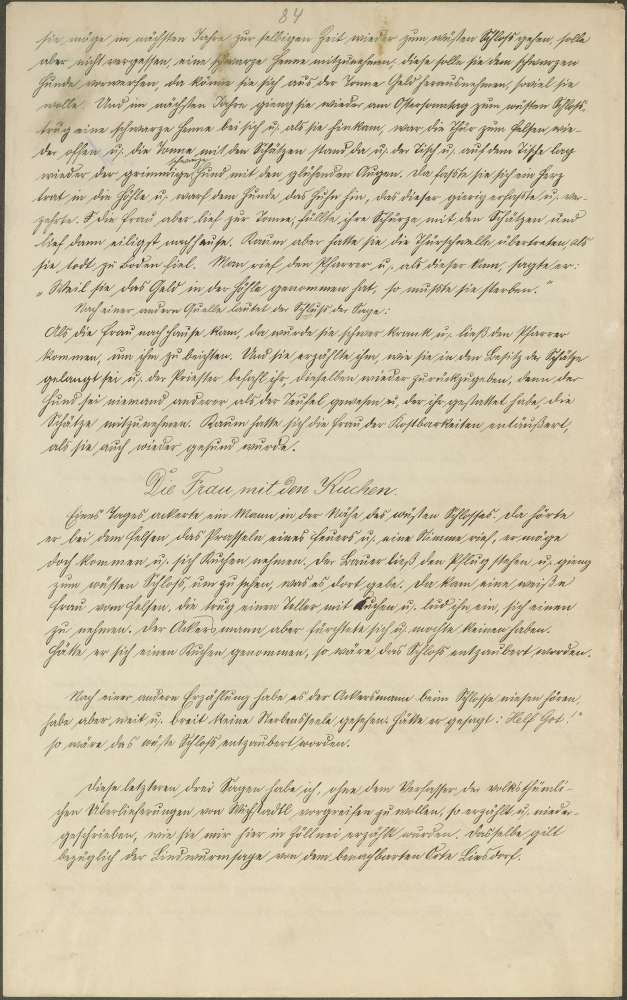 84
sie möge im nächsten Jahre zur selbigen Zeit wieder zum wüsten Schloß gehen, solle
aber nicht vergessen, eine schwarze Henne mitzunehmen, diese solle sie dem schwarzen
Hunde vorwerfen, da könne sie sich aus der Tonne Geld herausnehmen, soviel sie
wolle. Und im nächsten Jahre gieng sie wieder am Ostersonntag zum wüsten Schloß
trug eine schwarze Henne bei sich u. als sie hinkam, war die Thür zum Felsen wie-
der offen u. die Tonne mit den Schätzen stand da u. der Tisch u. auf dem Tische lag
wieder der grimmige schwarze Hund mit den glühenden Augen. Da faßte sie sich ein Herz
trat in die Höhle u. warf dem Hunde das Huhn hin, das dieser gierig erfaßte u. ver-
zehrte. Die Frau aber lief zur Tonne, füllte ihre Schürze mit den Schätzen und
lief dann eiligst nach Hause. Kaum aber hatte sie die Thürschwelle übertreten als
sie todt zu Boden fiel. Man rief den Pfarrer u. als dieser kam, sagte er:
„Weil sie das Geld in der Höhle genommen hat, so mußte sie sterben."
Nach einer andern Quelle lautet der Schluß der Sage:
Als die Frau nach Hause kam, da wurde sie schwer krank u. ließ den Pfarrer
kommen, um ihm zu beichten. Und sie erzählte ihm, wie sie in den Besitz der Schätze
gelangt sei u. der Priester befahl ihr, dieselben wieder zurückzugeben, denn der
Hund sei niemand anderer als der Teufel gewesen u. der ihr gestattet habe, die
Schätze mitzunehmen. Kaum hatte sich die Frau der Kostbarkeiten entäußert,
als sie auch wieder gesund wurde.
Die Frau mit den Kuchen.
Eines Tages ackerte ein Mann in der Nähe des wüsten Schlosses. Da hörte
er bei dem Felsen das Prasseln eines Feuers u. eine Stimme rief, er möge
doch kommen u. sich Kuchen nehmen. Der Bauer ließ den Pflug stehen u. gieng
zum wüsten Schloß um zu sehen, was es dort gebe. Da kam eine weiße
Frau vom Felsen, die trug einen Teller mit Kuchen u. lud ihn ein, sich einen
zu nehmen. Der Ackersmann aber fürchtete sich u. mochte keinen haben.
Hätte er sich einen Kuchen genommen, so wäre das Schloß entzaubert worden.
Nach einer andern Erzählung habe es der Ackersmann beim Schlosse niesen hören,
habe aber weit u. breit keine Sterbensseele gesehen. Hätte er gesagt: „Helf Got!"
so wäre das wüste Schloß entzaubert worden.
Diese letzteren drei Sagen habe ich, ohne dem Verfasser der volksthümli-
chen Überlieferungen von Wichstadtl vorgreifen zu wollen, so erzählt u. nieder-
geschrieben, wie sie mir hier in Hüllnei erzählt wurden. Dasselbe gilt
bezüglich der Lindwurmsage von dem benachbarten Orte Linsdorf.